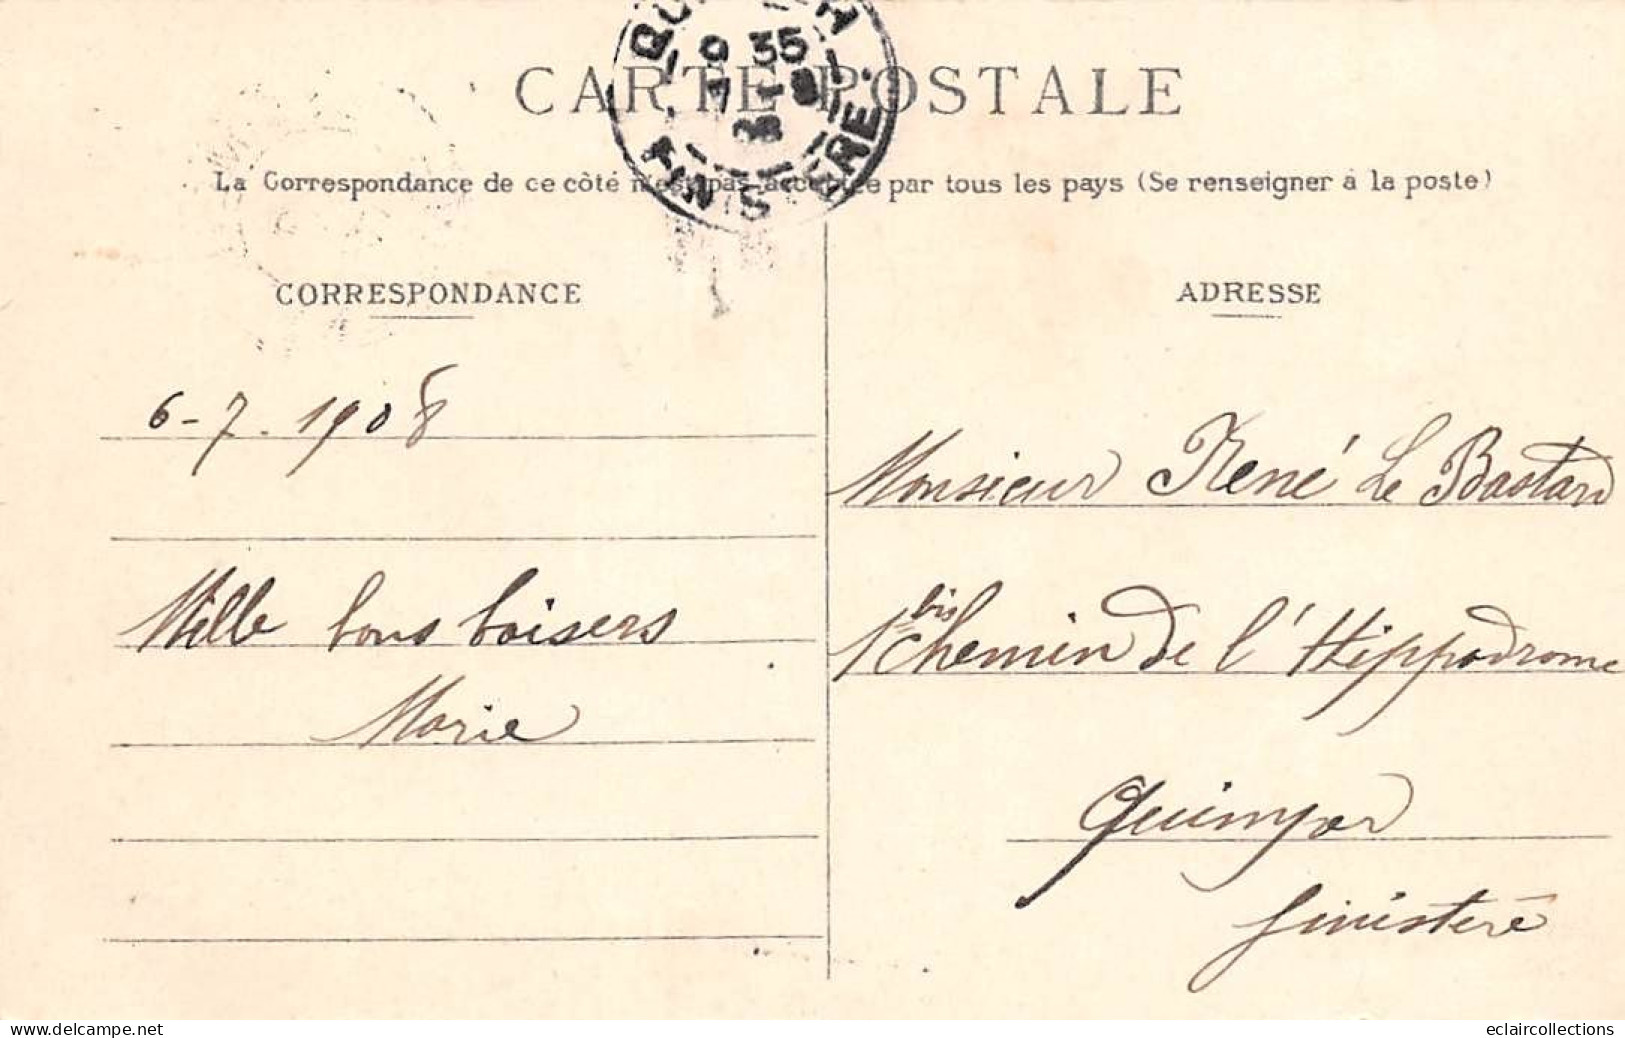 CARTE POSTALE
La Correspondance de ce côté n'est pas acceptée par tous les pays (Se renseigner à la poste)
9 35
7
08
FINISTERE
CORRESPONDANCE
6-7-1908
Mille bons baisers
Marie
ADRESSE
Monsieur René Le Bastard
1 bis chemin de l'Hippodrome
Quimper
Finistère
www.delcampe.net
eclaircollections